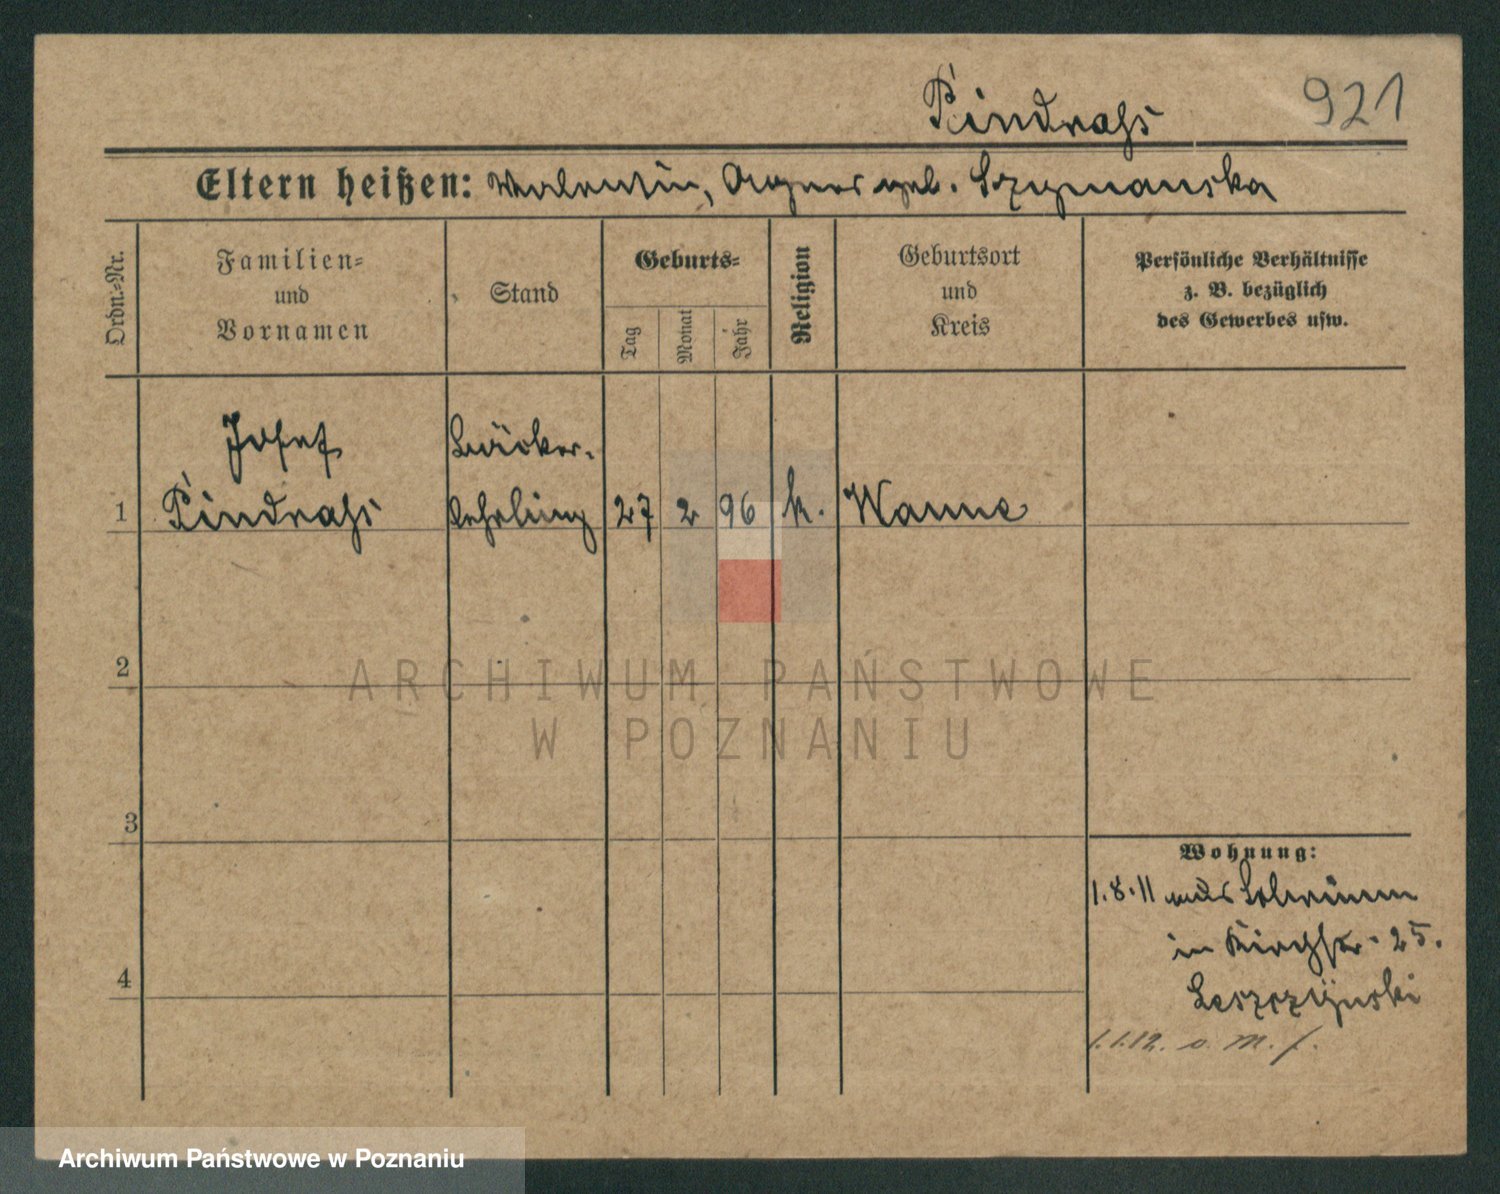 Pindrahs
921
Eltern heißen: Valentin, Agnes geb. Szymanska
Ordn.-Nr.
Familien-
und
Vornamen
Stand
Geburts-
Tag
Monat
Jahr
Religion
Geburtsort
und
Kreis
Persönliche Verhältnisse
z. B. bezüglich
des Gewerbes usw.
Josef
Bäcker-
1 Pindrahs lehrling 27 2 96 k. Wanne
2
ARCHIWUM PAŃSTWOWE
W POZNANIU
3
Wohnung:
1.8.11 aus
in Kirchstr. 25.
4
Leszczynski
1.1.12. o. M. f.
Archiwum Państwowe w Poznaniu